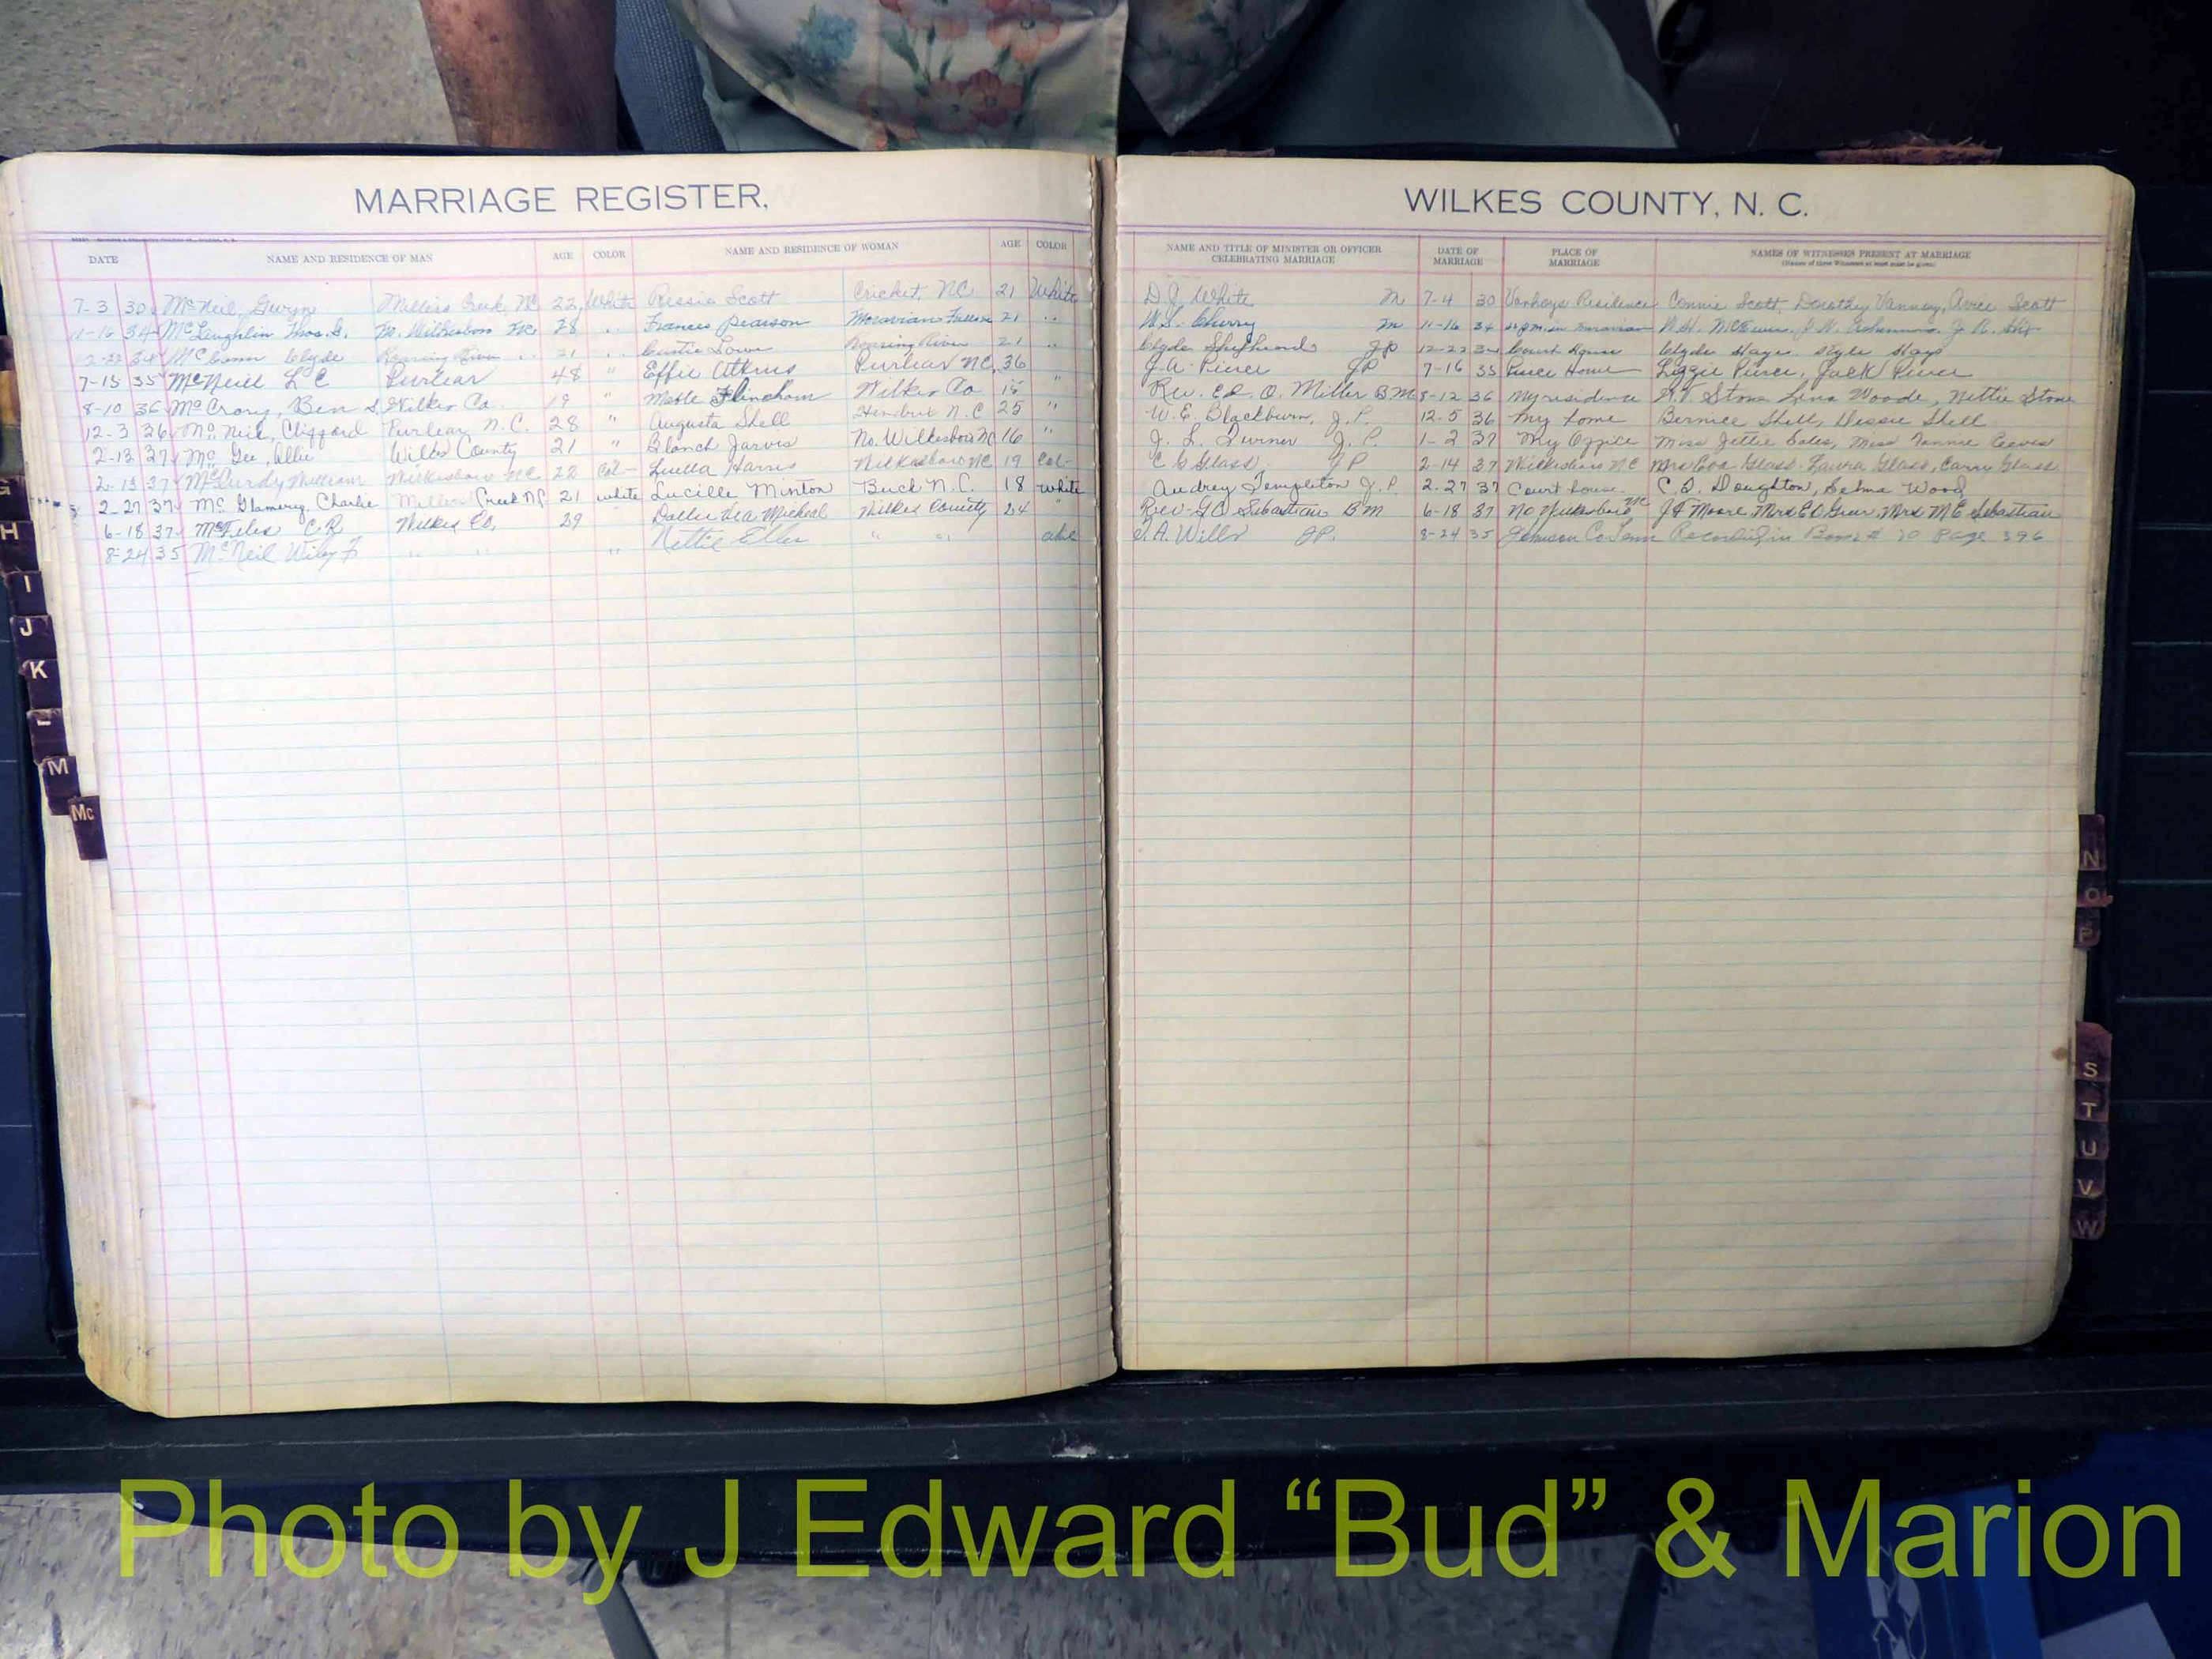 MARRIAGE REGISTER,
WILKES COUNTY, N. C.
DATE NAME AND RESIDENCE OF MAN AGE COLOR NAME AND RESIDENCE OF WOMAN AGE COLOR NAME AND TITLE OF MINISTER OR OFFICER CELEBRATING MARRIAGE DATE OF MARRIAGE PLACE OF MARRIAGE NAMES OF WITNESSES PRESENT AT MARRIAGE
(Names of three Witnesses at least must be given)
7-3 30 McNeil, Gwyn Millers Creek, NC 22 White Ressie Scott Cricket, NC 21 White D.J. White M 7-4 30 Residence Connie Scott, Dorothy Vannoy, Scott
11-16 34 McLaughlin Thos. G. No. Wilkesboro NC 28 " Frances Pearson Moravian Falls 21 " W.S. Cherry M 11-16 34 Moravian W.H. J.W. J.R. Hix
12-22 34 Clyde Roaring River " 21 " Lowe Roaring River 21 " Clyde Shepherd JP 12-22 34 Court House Clyde Hays
7-15 35 McNeill L C Purlear 48 " Effie Atkins Purlear NC 36 J.A. Pierce JP 7-16 35 Pierce Home Lizzie Pierce, Jack Pierce
8-10 36 McCrary, Ben S. Wilkes Co. 19 " Mable Flincham Wilkes Co " Rev. Ed. O. Miller B.M. 8-12 36 My residence Stone Lena Woods, Nettie Stone
12-3 36 McNeil, Clifford Purlear N.C. 28 " Augusta Shell Hendrix N.C 25 " W.E. Blackburn, J.P. 12-5 36 My home Bernice Shell, Dessie Shell
2-13 37 McGee, Allie Wilkes County 21 " Blanch Jarvis No. Wilkesboro NC 16 " J. L. Turner J. P. 1-2 37 My Office Miss Bales, Miss Reeves
2-13 37 McCurdy William Wilkesboro NC 22 Col- Luella Harris Wilkesboro NC 19 Col- C G Glass JP 2-14 37 Wilkesboro NC Mrs Glass, Laura Glass, Carry Glass
2-27 37 McGlamery, Charlie Millers Creek N.C. 21 white Lucille Minton Buck N.C. 18 white Audrey Templeton J.P. 2-27 37 Court house C.D. Doughton, Selma Wood
6-18 37 C R Wilkes Co, 29 Micheal Wilkes County 24 " Rev G C Sebastian B M 6-18 37 No Wilkesboro NC J F Moore Mrs Mrs M E Sebastian
8-24 35 McNeil F " " " Nettie Eller " " T.A. Wills JP. 8-24 35 Johnson Co. Tenn Recorded in Book # 10 Page 396
G
H
I
J
K
L
M
Mc
N
O
P
S
T
U
V
W
Photo by J Edward “Bud” & Marion